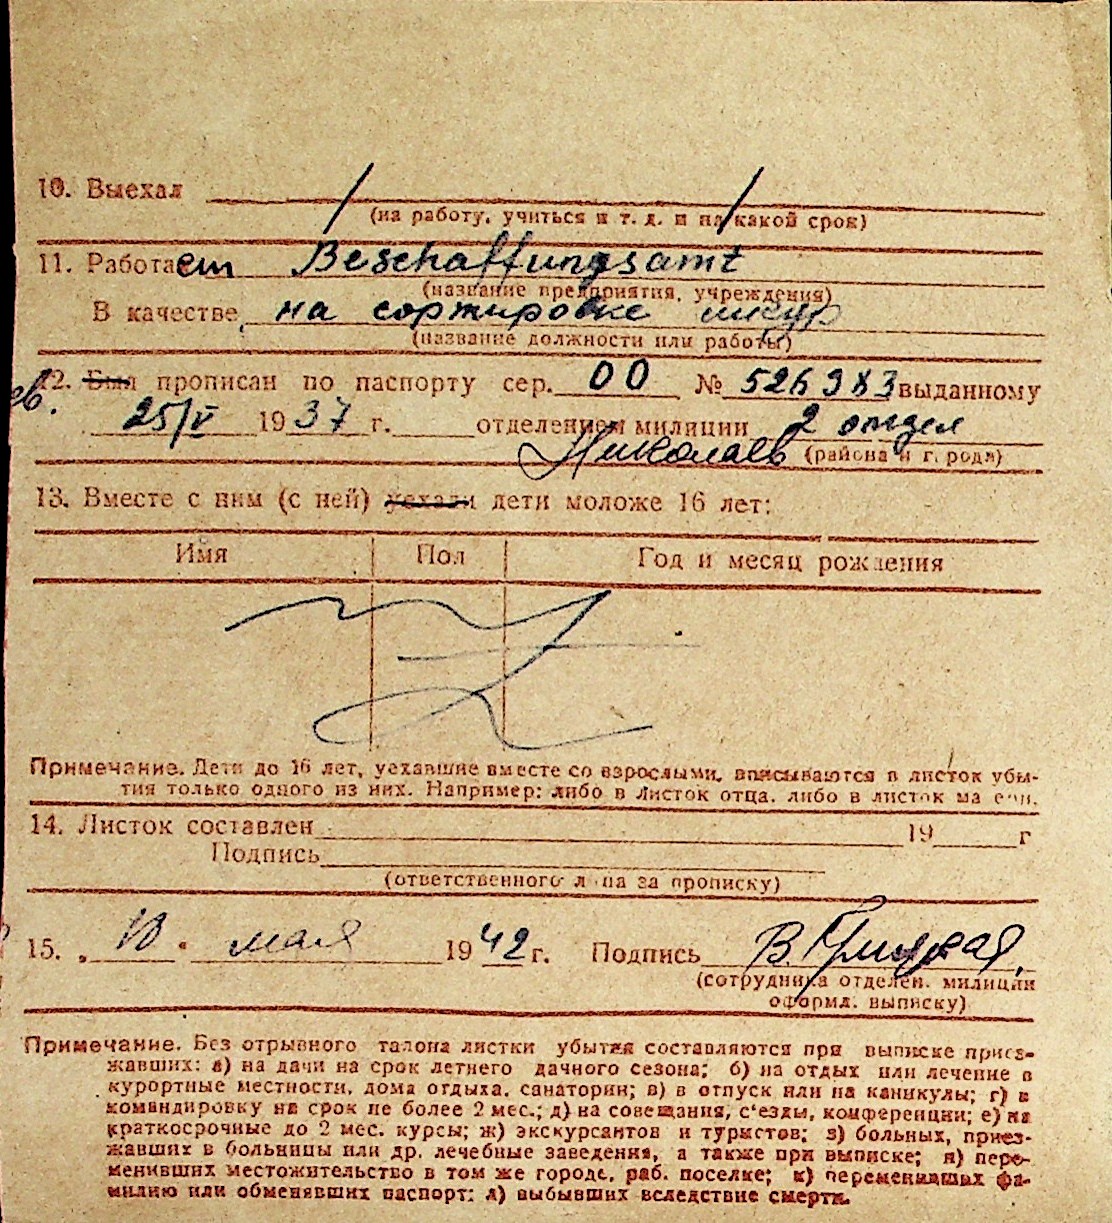 10. Выехал
(на работу, учиться и т. д. и на какой срок)
11. Работает Beschaffungsamt
(название предприятия, учреждения)
В качестве на сортировке шкур
(название должности или работы)
12. Был прописан по паспорту сер. 00 № 526983 выданному
25/V 1937 г. отделением милиции 2 отдел
Николаев (района и города)
13. Вместе с ним (с ней) уехали дети моложе 16 лет:
Имя Пол Год и месяц рождения
Примечание. Дети до 16 лет, уехавшие вместе со взрослыми, вписываются в листок убы-
тия только одного из них. Например: либо в листок отца, либо в листок матери.
14. Листок составлен 19 г
Подпись
(ответственного лица за прописку)
15. 10 мая 1942 г. Подпись В.
(сотрудника отделен. милиции
оформл. выписку)
Примечание. Без отрывного талона листки убытия составляются при выписке приез-
жавших: а) на дачи на срок летнего дачного сезона; б) на отдых или лечение в
курортные местности, дома отдыха, санатории; в) в отпуск или на каникулы; г) в
командировку на срок не более 2 мес.; д) на совещания, с'езды, конференции; е) на
краткосрочные до 2 мес. курсы; ж) экскурсантов и туристов; з) больных, приез-
жавших в больницы или др. лечебные заведения, а также при выписке; и) пере-
менивших местожительство в том же городе, раб. поселке; к) переменивших фа-
милию или обменявших паспорт; л) выбывших вследствие смерти.